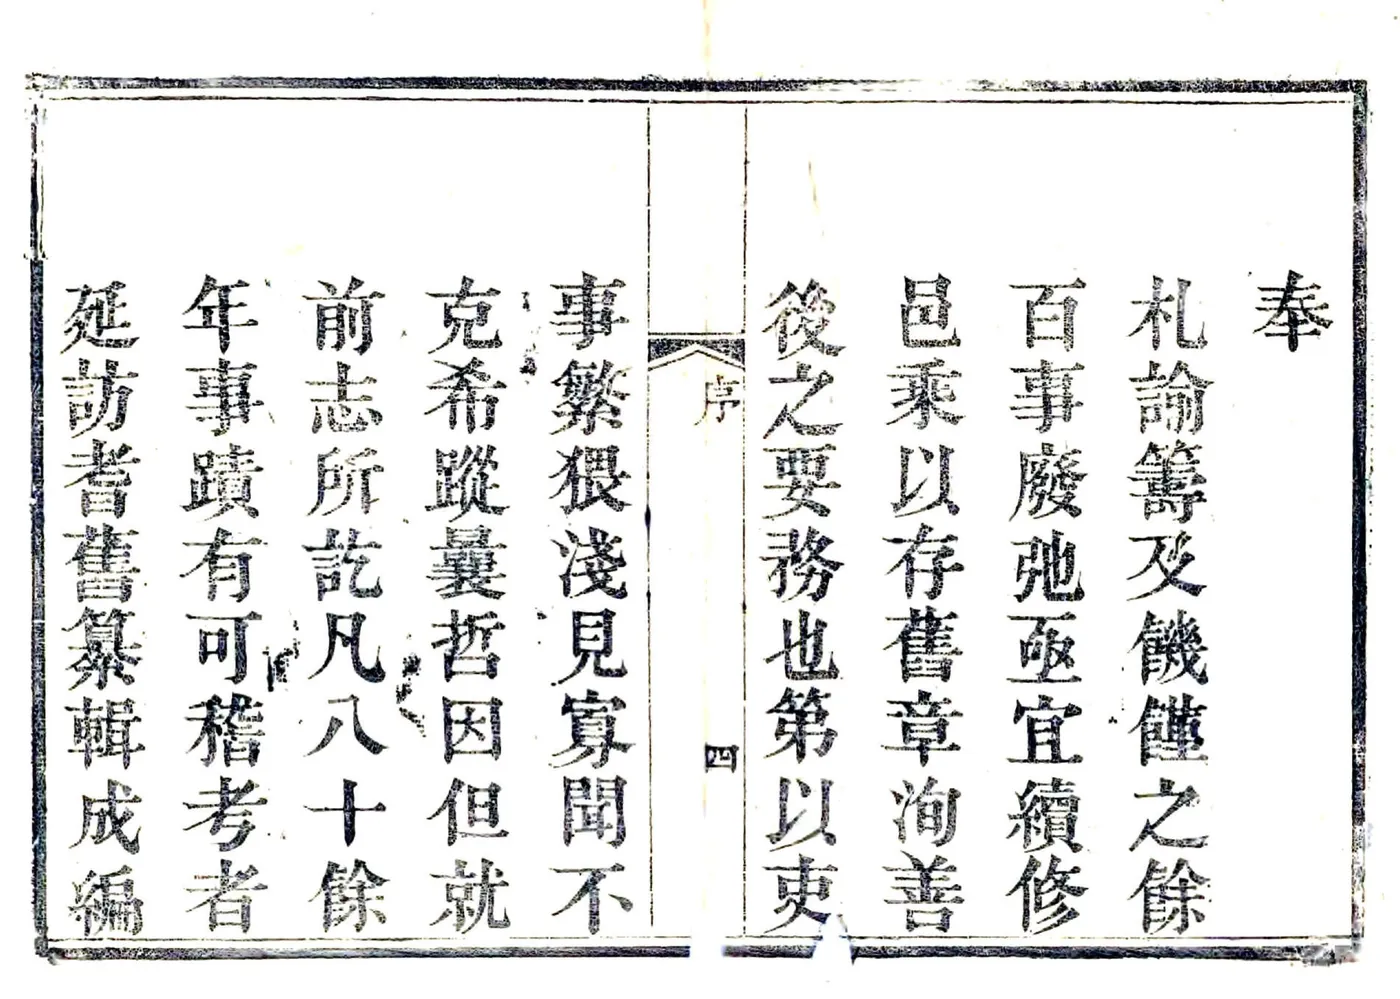 奉
札論籌及饑饉之餘
百事廢弛亟宜續修
邑乘以存舊章洵善
後之要務也第以吏
序
四
事繁猥淺見寡聞不
克希蹤曩哲因但就
前志所訖凡八十餘
年事蹟有可稽考者
延訪耆舊纂輯成編